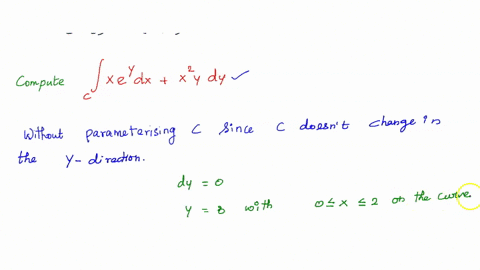 Compute ∫_C x e^y dx + x^2 y dy ✓
Without parameterising C since C doesn't change in
the Y-direction.
dy = 0
y = 3 with 0 ≤ x ≤ 2 on the curve.